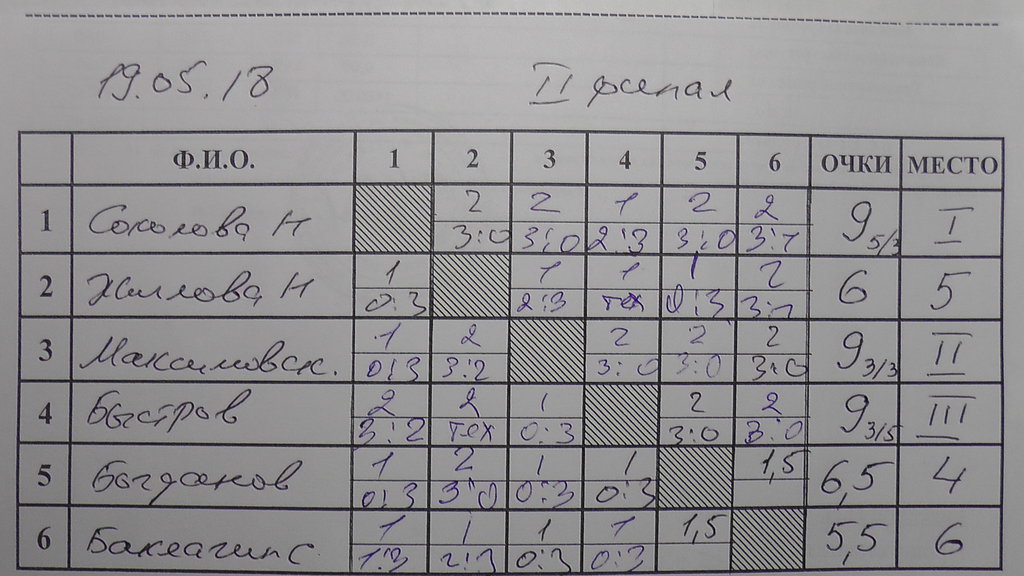 19.05.18 II финал
Ф.И.О. 1 2 3 4 5 6 ОЧКИ МЕСТО
1 Соколова Н 2 2 1 2 2 9 I
3:0 3:0 2:3 3:0 3:1 5/3
2 Жиллова Н 1 1 1 1 2 6 5
0:3 2:3 тех 0:3 3:1
3 Максимовск. 1 2 2 2 2 9 II
0:3 3:2 3:0 3:0 3:0 3/3
4 Быстров 2 2 1 2 2 9 III
3:2 тех 0:3 3:0 3:0 3/5
5 Богданов 1 2 1 1 1,5 6,5 4
0:3 3:0 0:3 0:3
6 1 1 1 1 1,5 5,5 6
1:3 0:3 0:3